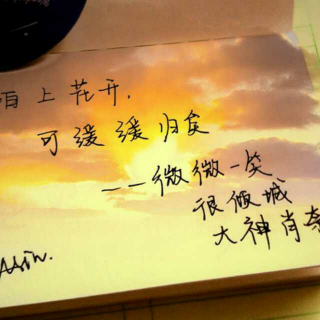 陌上花开，
可缓缓归矣
——微微一笑
很倾城
大神肖奈